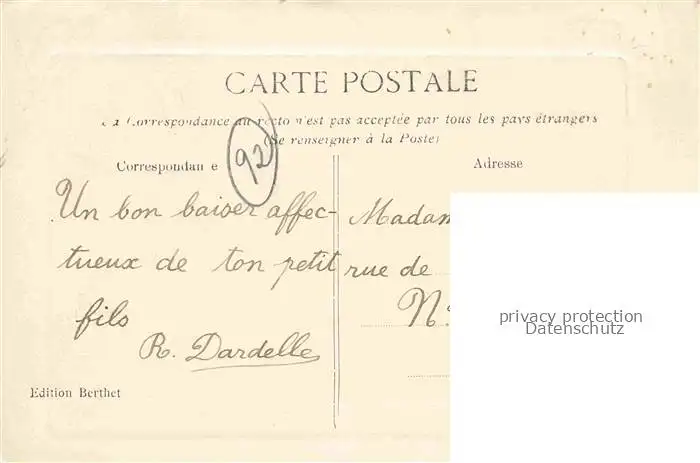 CARTE POSTALE
La Correspondance au recto n'est pas acceptée par tous les pays étrangers
(Se renseigner à la Poste)
Correspondan e
Adresse
92
Un bon baiser affec-
tueux de ton petit
fils
R. Dardelle
Madam
rue de
N.
privacy protection
Datenschutz
Edition Berthet